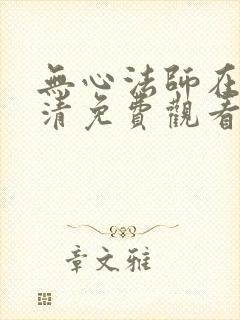 無心法師在
清免費觀看
章文雅